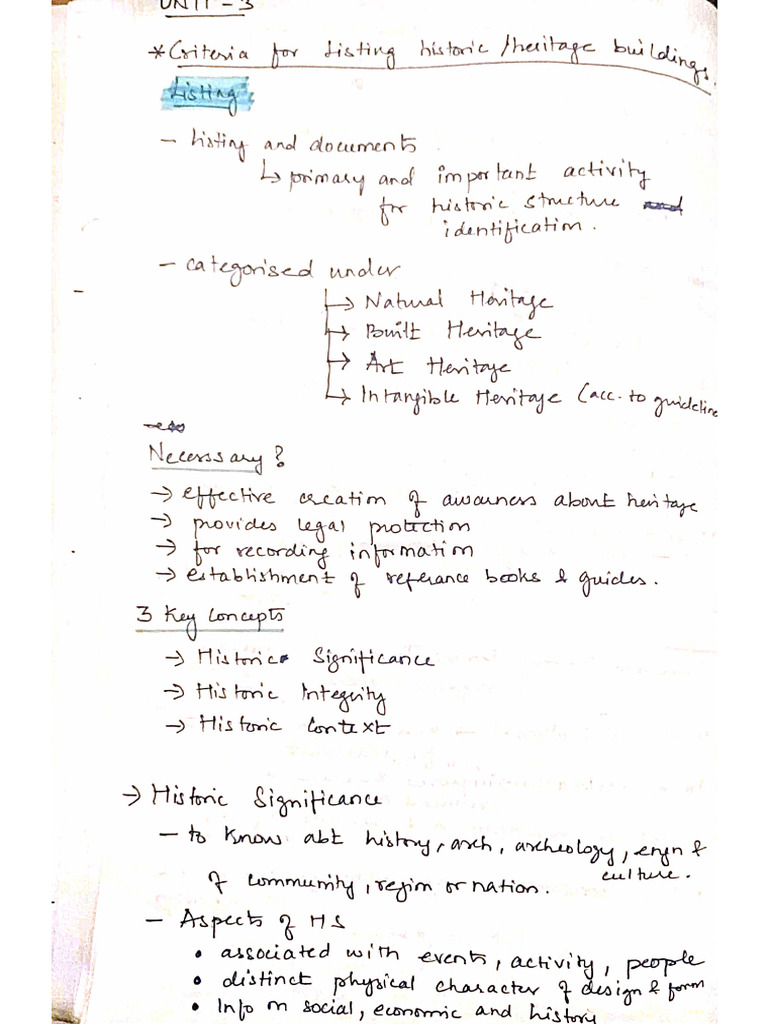 UNIT - 3
* Criteria for Listing historic /heritage buildings.
Listing
- Listing and documents
↳ primary and important activity
for historic structure
identification.
- categorised under
→ Natural Heritage
→ Built Heritage
→ Art Heritage
→ Intangible Heritage (acc. to guideline
Necesssary?
→ effective creation of awarness about heritage
→ provides legal protection
→ for recording information
→ establishment of referance books & guides.
3 Key Concepts
→ Historic Significance
→ Historic Integrity
→ Historic Context
→ Historic Significance
- to know abt history, arch, archeology, engn &
culture.
of community, regim or nation.
- Aspects of HS
• associated with events, activity, people
• distinct physical character of design & form
• Info on social, economic and history